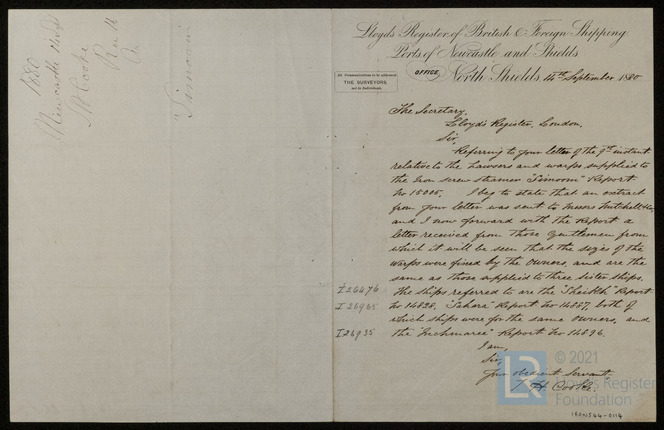 1880
Newcastle
Mr Cooke
"Simoom"
Lloyd's Register of British & Foreign Shipping
Ports of Newcastle and Shields
OFFICE, North Shields 14th September 1880
All Communications to be addressed
THE SURVEYORS
not by Individuals.
The Secretary,
Lloyd's Register, London,
Sir,
Referring to your letter of the 9th instant
relative to the Hawsers and warps supplied to
the Iron screw steamer "Simoom" Report
No 15005, I beg to state that an extract
from your letter was sent to Messrs Mitchell & Co,
and I now forward with the Report a
letter received from those Gentlemen from
which it will be seen that the sizes of the
warps were fixed by the Owners, and are the
same as those supplied to three sister ships.
The ships referred to are the "Sheikh" Report
No 14828, "Sahara" Report No 14887, both of
which ships were for the same Owners, and
the "Inchmaree" Report No 14896.
I26676
I26965
I26935
I am,
Sir,
Your obedient Servant,
J H Cooke.
LR © 2021
Lloyd's Register
Foundation
IRON544-0114